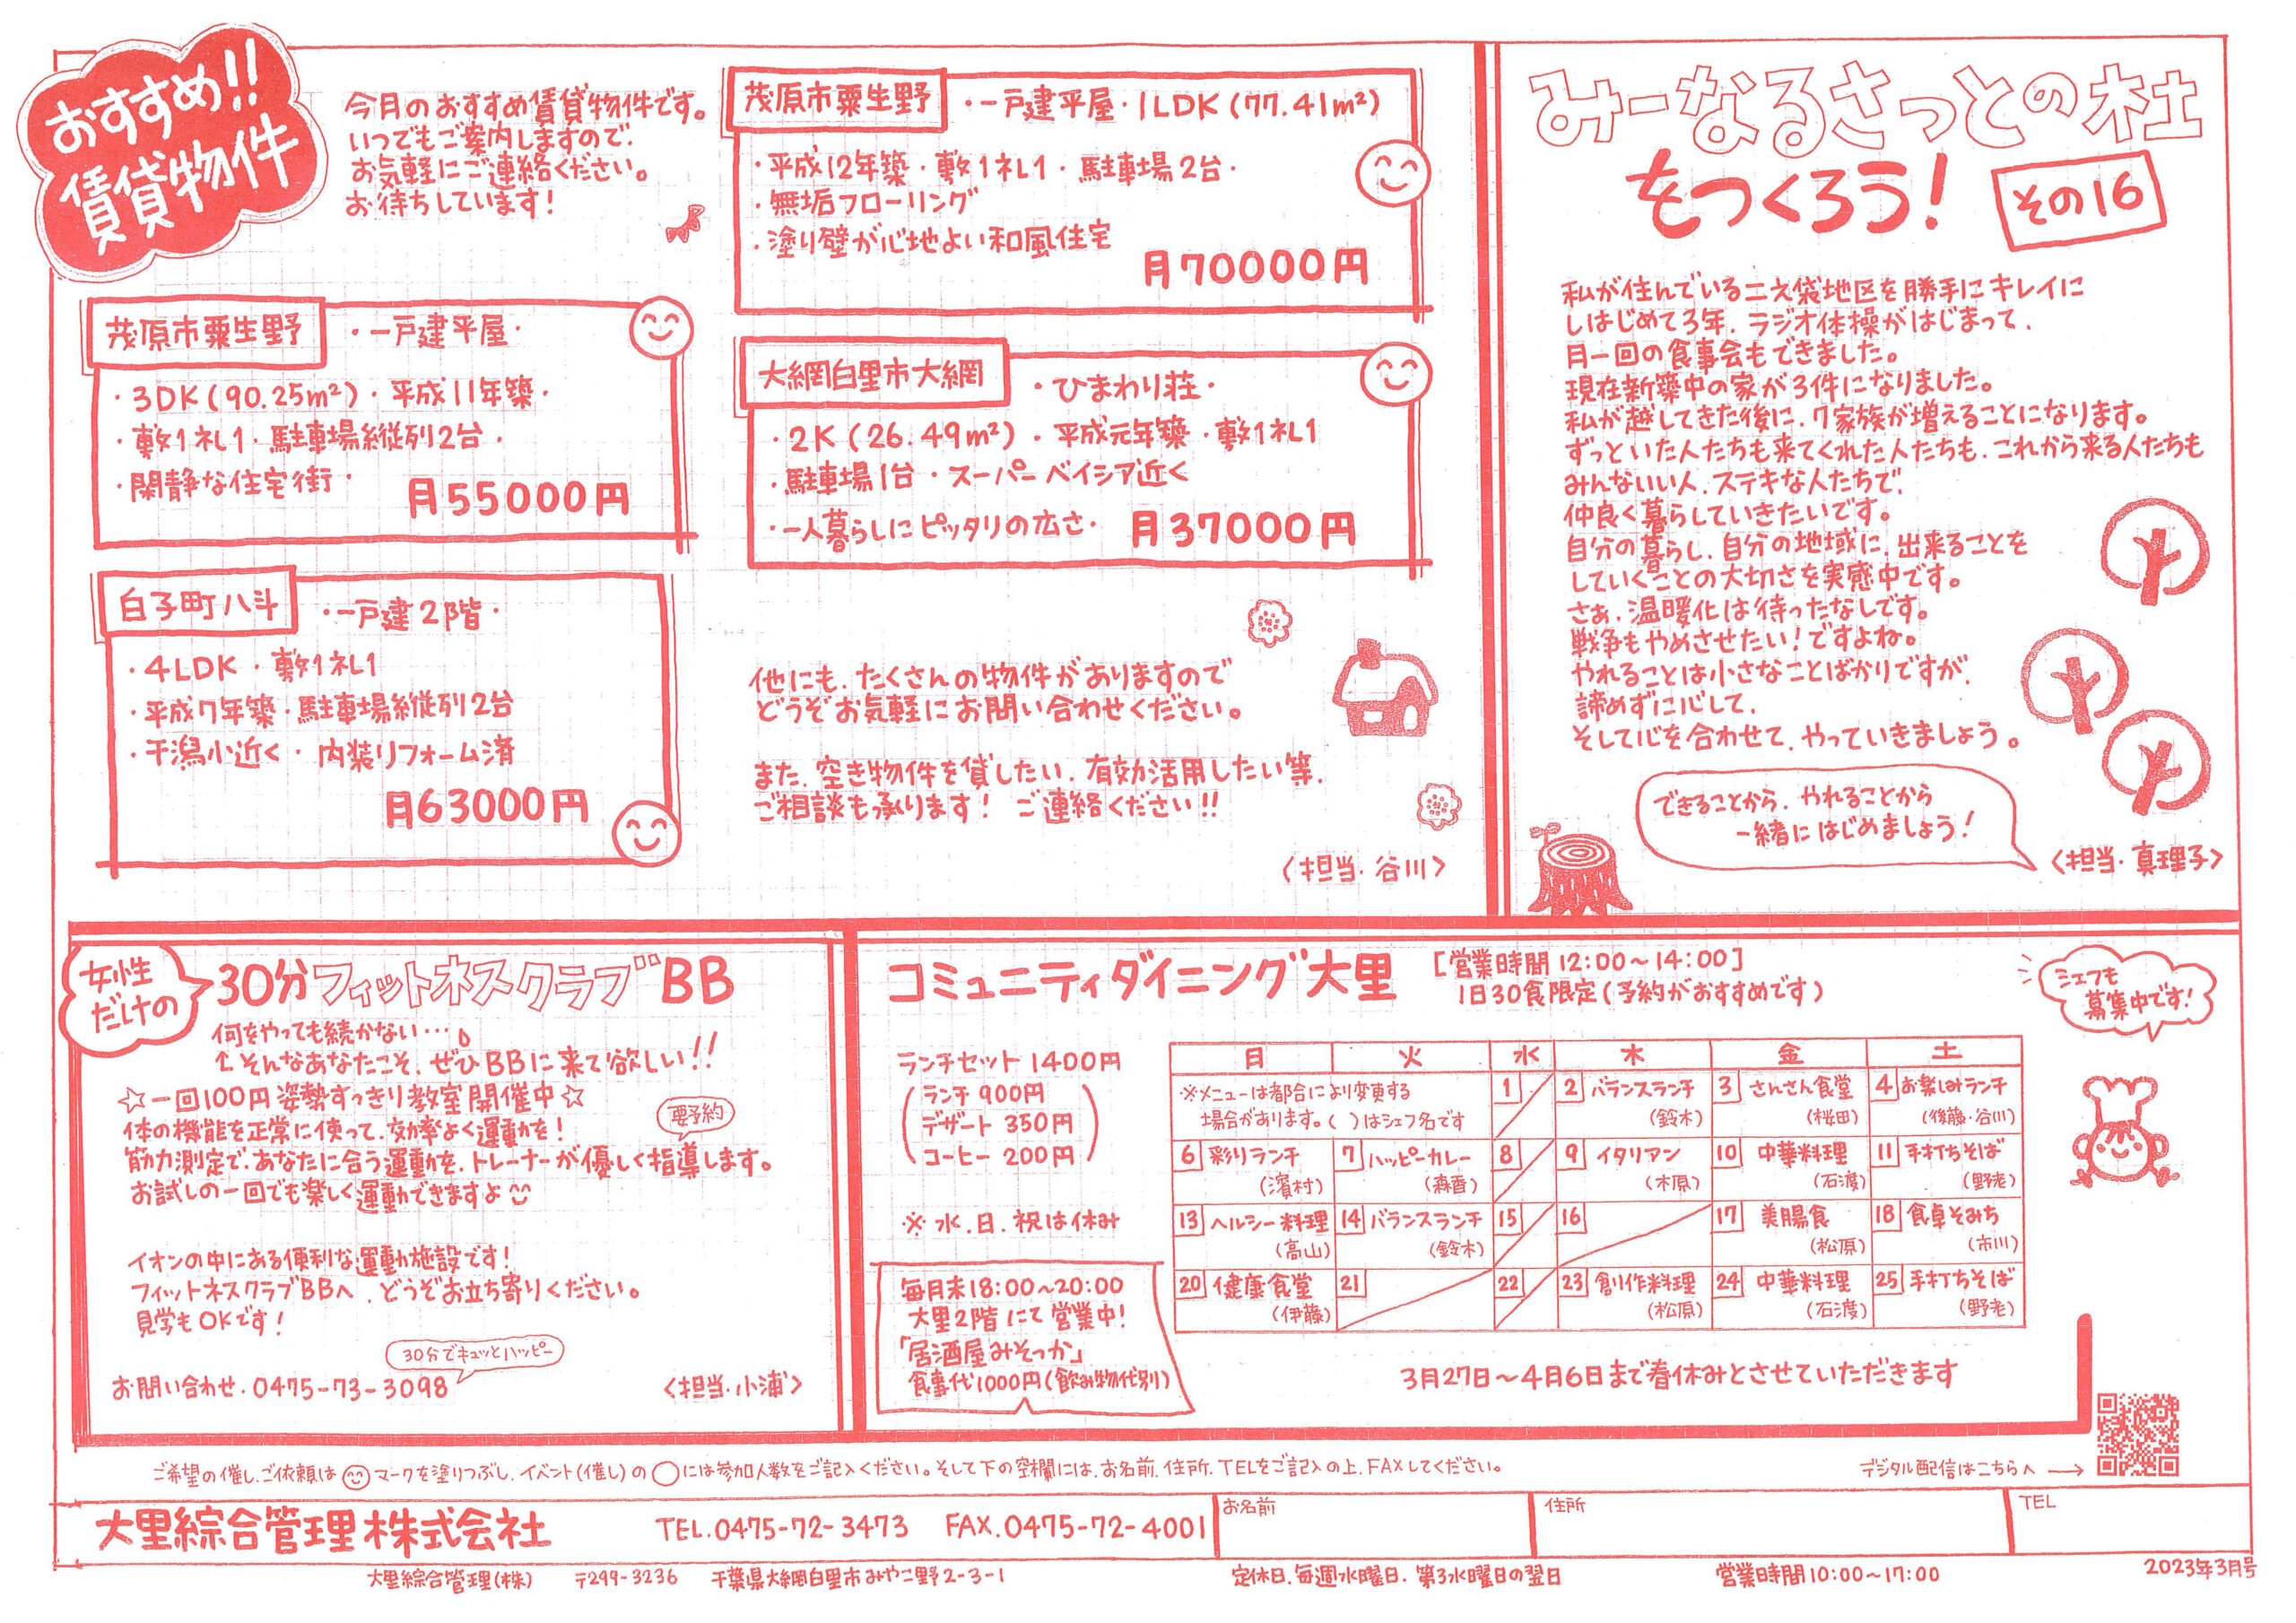 おすすめ!!
賃貸物件
今月のおすすめ賃貸物件です。
いつでもご案内しますので、
お気軽にご連絡ください。
お待ちしています!
茂原市粟生野
・一戸建平屋・1LDK(77.41m²)
・平成12年築・敷1礼1・駐車場2台・
・無垢フローリング
・塗り壁が心地よい和風住宅
月70000円
茂原市粟生野
・一戸建平屋・
・3DK(90.25m²)・平成11年築・
・敷1礼1・駐車場縦列2台・
・閑静な住宅街・
月55000円
大網白里市大網
・ひまわり荘・
・2K(26.49m²)・平成元年築・敷1礼1
・駐車場1台・スーパーベイシア近く
・一人暮らしにピッタリの広さ・
月37000円
白子町八斗
・一戸建2階・
・4LDK・敷1礼1
・平成7年築・駐車場縦列2台
・干潟小近く・内装リフォーム済
月63000円
他にも、たくさんの物件がありますので
どうぞお気軽にお問い合わせください。
また、空き物件を貸したい、有効活用したい等、
ご相談も承ります! ご連絡ください!!
〈担当・谷川〉
みーなるさっとの杜
をつくろう!
その16
私が住んでいる二之袋地区を勝手にキレイに
しはじめて3年、ラジオ体操がはじまって、
月一回の食事会もできました。
現在新築中の家が3件になりました。
私が越してきた後に、7家族が増えることになります。
ずっといた人たちも来てくれた人たちも、これから来る人たちも
みんないい人、ステキな人たちで、
仲良く暮らしていきたいです。
自分の暮らし、自分の地域に、出来ることを
していくことの大切さを実感中です。
さぁ、温暖化は待ったなしです。
戦争もやめさせたい!ですよね。
やれることは小さなことばかりですが、
諦めずに心して、
そして心を合わせて、やっていきましょう。
できることから、やれることから
一緒にはじめましょう!
〈担当・真理子〉
女性
だけの
30分フィットネスクラブBB
何をやっても続かない…
↑そんなあなたこそ、ぜひBBに来て欲しい!!
☆一回100円姿勢すっきり教室開催中☆
要予約
体の機能を正常に使って、効率よく運動を!
筋力測定で、あなたに合う運動を、トレーナーが優しく指導します。
お試しの一回でも楽しく運動できますよ
イオンの中にある便利な運動施設です!
フィットネスクラブBBへ、どうぞお立ち寄りください。
見学もOKです!
30分でキュッとハッピー
お問い合わせ・0475-73-3098
〈担当・小浦〉
コミュニティダイニング大里
[営業時間12:00~14:00]
1日30食限定(予約がおすすめです)
シェフも
募集中です!
ランチセット1400円
(ランチ 900円
デザート 350円
コーヒー 200円)
※水、日、祝は休み
毎月末18:00~20:00
大里2階にて営業中!
「居酒屋みそっか」
食事代1000円(飲み物代別)
月 火 水 木 金 土
※メニューは都合により変更する
場合があります。( )はシェフ名です
1
2 バランスランチ (鈴木)
3 さんさん食堂 (桜田)
4 お楽しみランチ (後藤・谷川)
6 彩りランチ (濱村)
7 ハッピーカレー (森香)
8
9 イタリアン (木原)
10 中華料理 (石渡)
11 手打ちそば (野老)
13 ヘルシー料理 (高山)
14 バランスランチ (鈴木)
15
16
17 美腸食 (松原)
18 食卓そみち (市川)
20 健康食堂 (伊藤)
21
22
23 創作料理 (松原)
24 中華料理 (石渡)
25 手打ちそば (野老)
3月27日~4月6日まで春休みとさせていただきます
ご希望の催し、ご依頼は マークを塗りつぶし、イベント(催し)の◯には参加人数をご記入ください。そして下の空欄には、お名前、住所、TELをご記入の上、FAXしてください。
デジタル配信はこちらへ→
大里綜合管理株式会社
TEL.0475-72-3473 FAX.0475-72-4001
お名前
住所
TEL
大里綜合管理(株) 〒299-3236 千葉県大網白里市みやこ野2-3-1
定休日、毎週水曜日、第3水曜日の翌日
営業時間10:00~17:00
2023年3月号